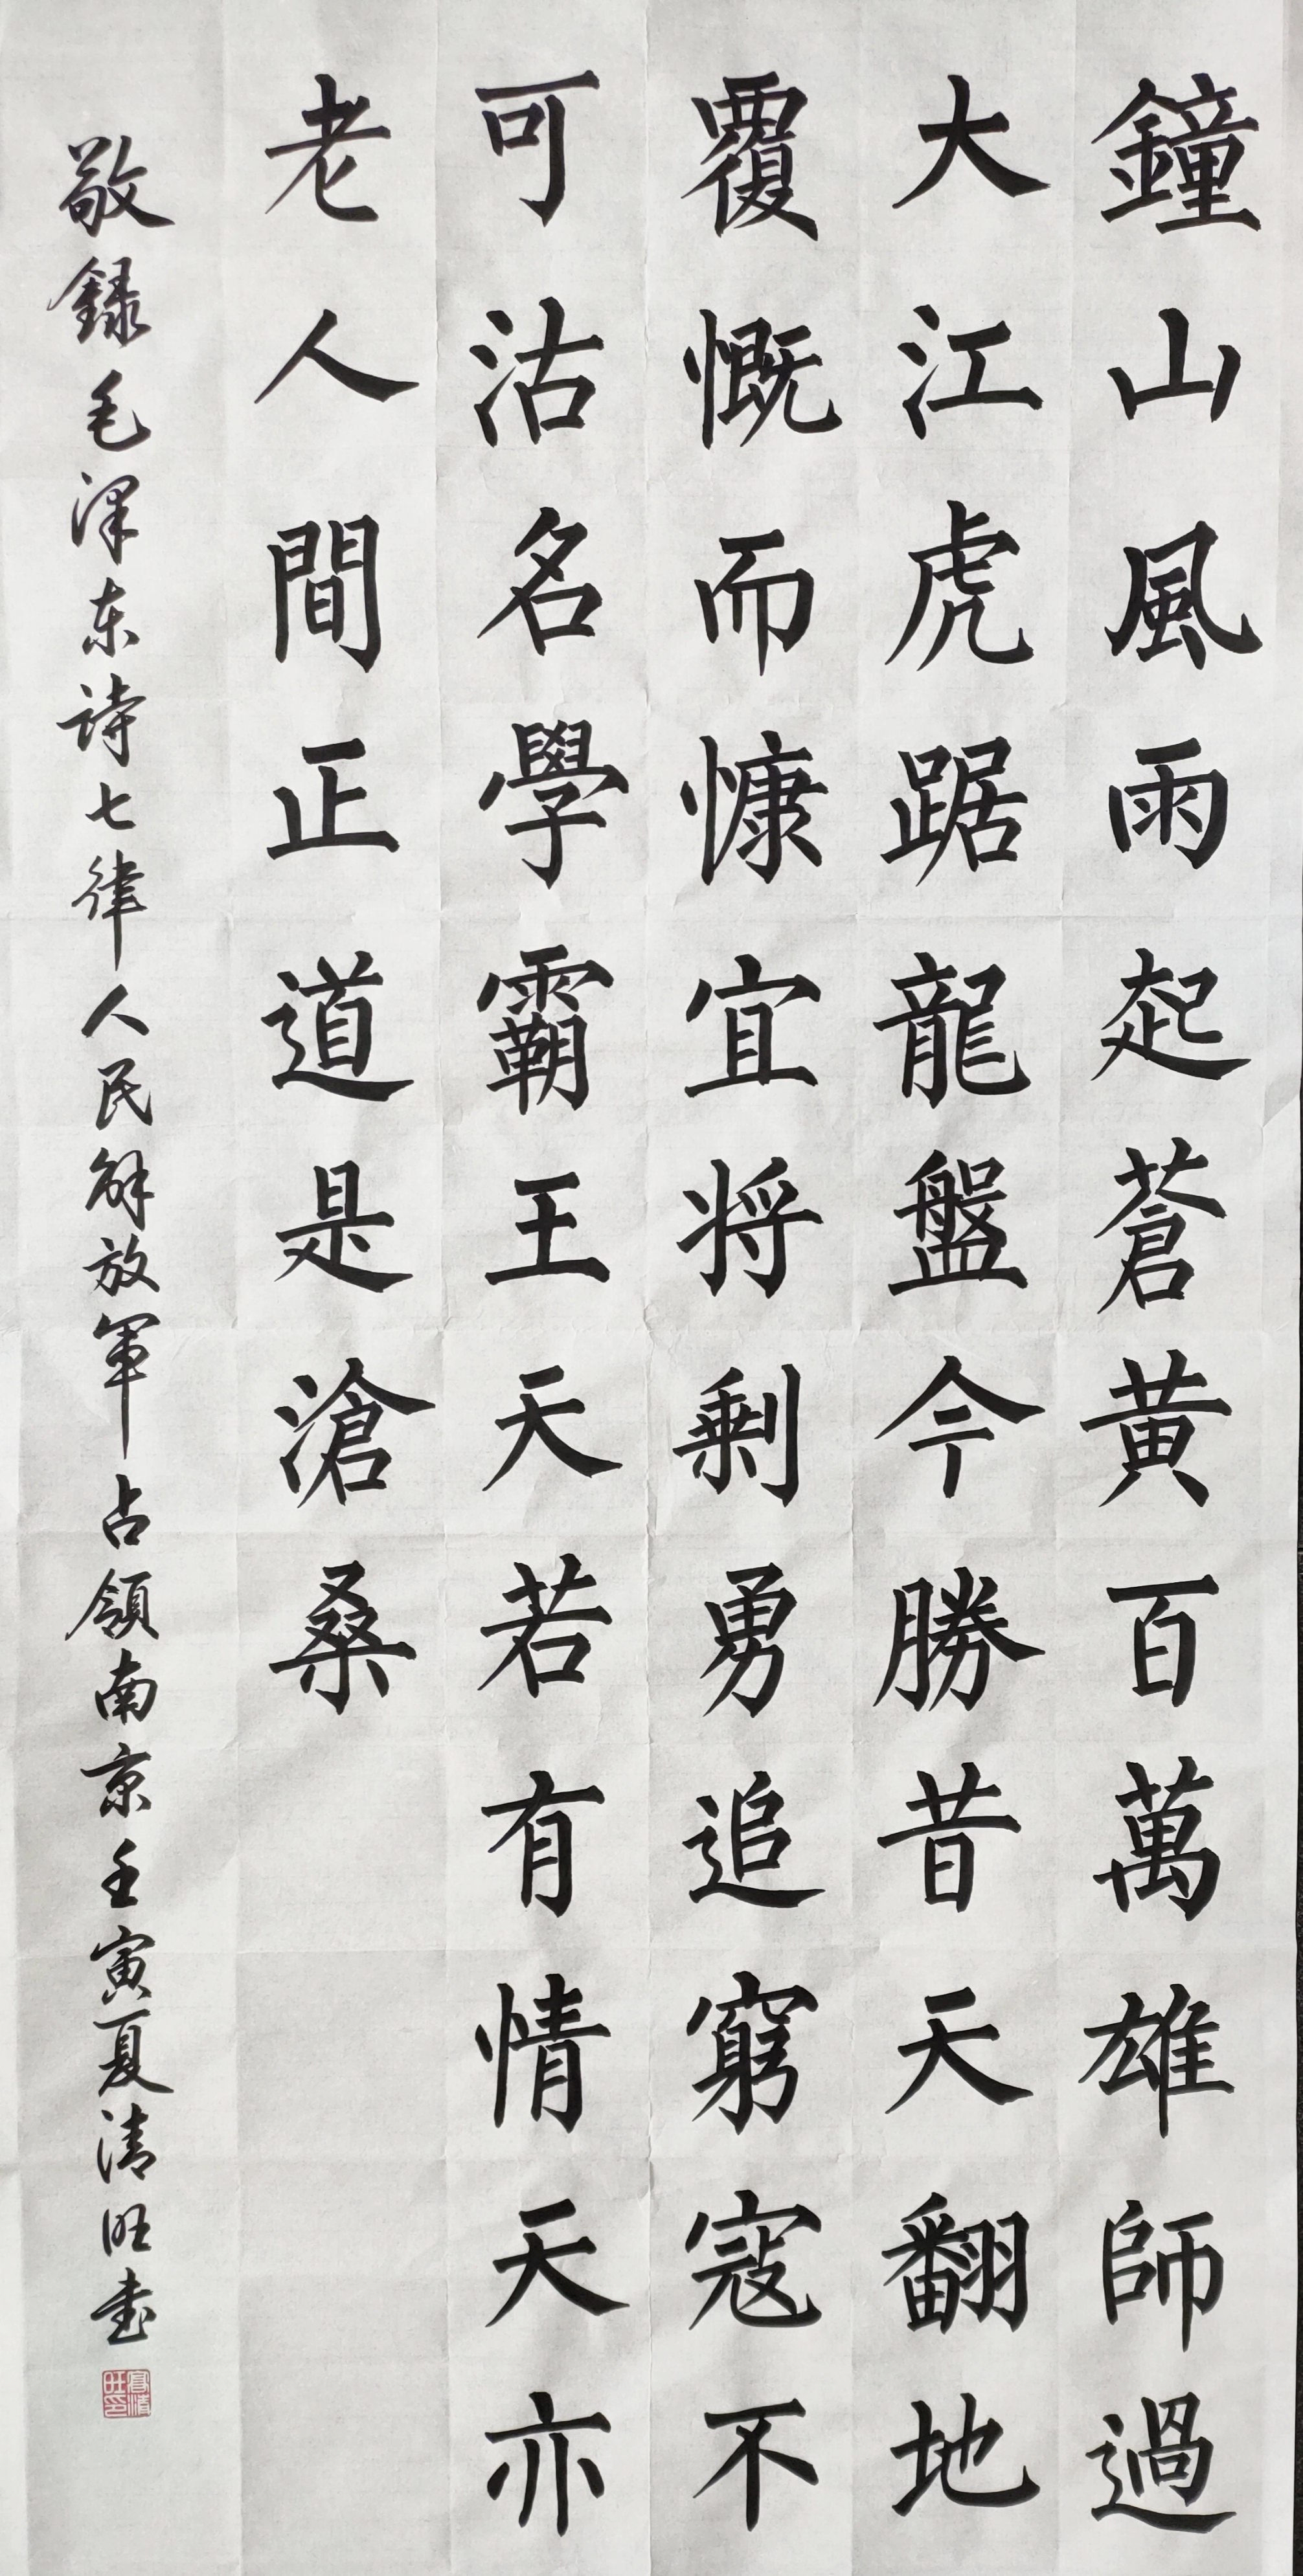 鐘山風雨起蒼黃百萬雄師過
大江虎踞龍盤今勝昔天翻地
覆慨而慷宜将剩勇追窮寇不
可沽名學霸王天若有情天亦
老人間正道是滄桑
敬録毛泽东詩七律人民解放軍占領南京壬寅夏清旺书